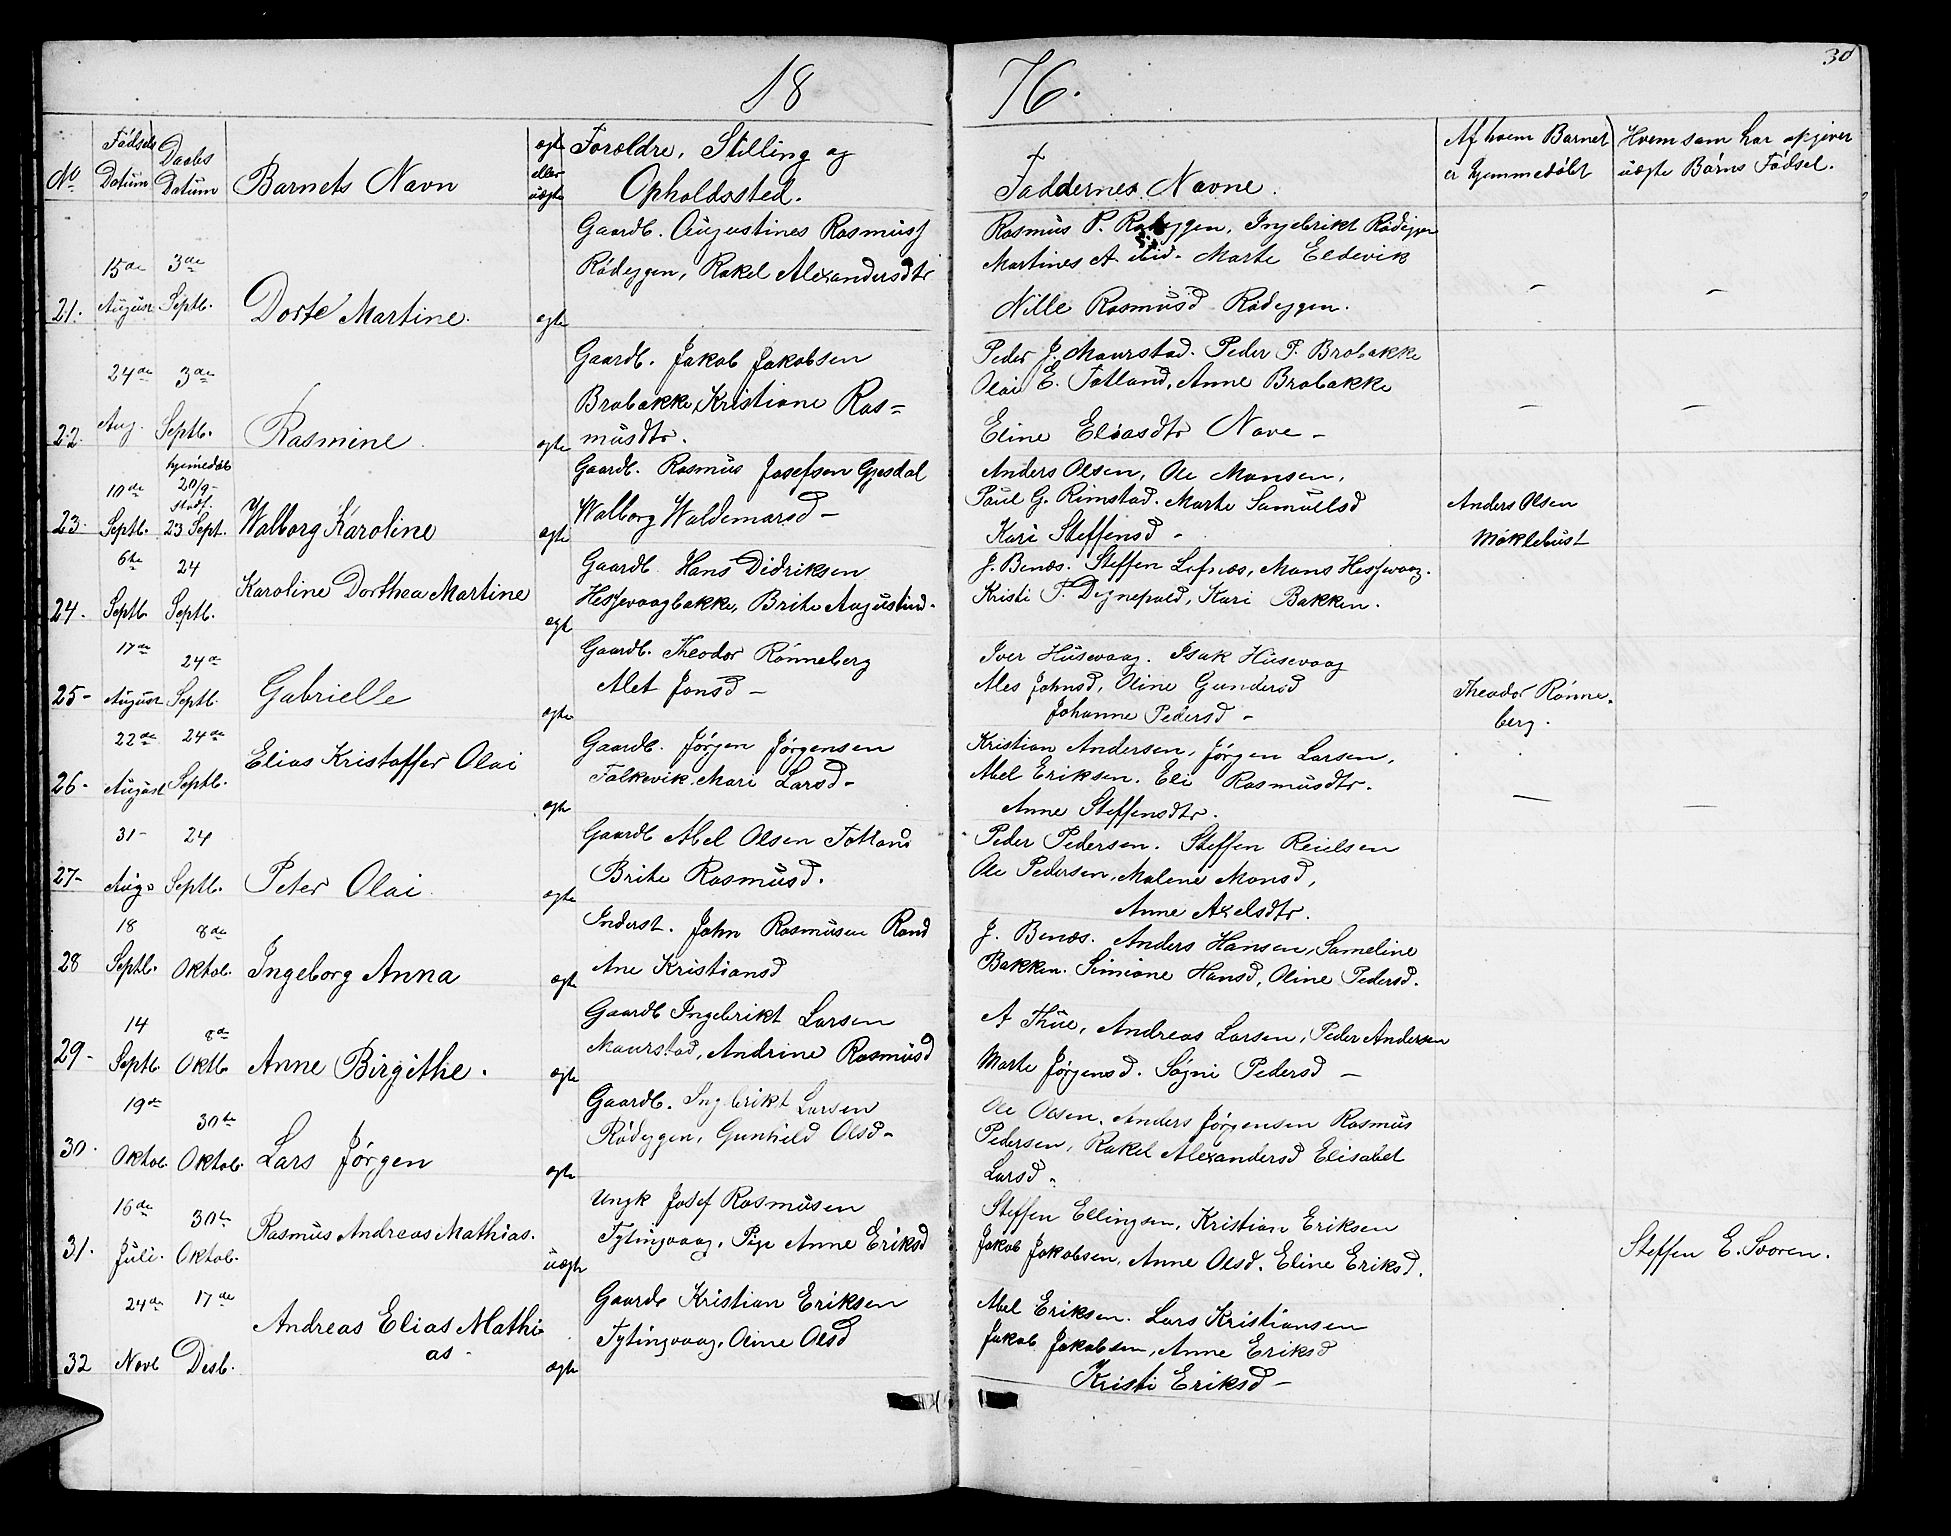 1876.
30
No
Fødsels Datum
Daabs Datum
Barnets Navn
ægte eller uægte
Forældre, Stilling og
Opholdssted.
Faddernes Navne.
Af hvem Barnet
er hjemmedøbt
Hvem som har opgiver
uægte Børns Fødsel.
21. 15de August 3de Septb. Dorte Martine. ægte
Gaardb. Augustines Rasmuss
Rødeggen, Rakel Alexandersdtr
Rasmus P. Rødeggen, Ingebrikt Rødeggen
Martines A ibid. Marte Eldevik
Nille Rasmusd Rødeggen.
— —
22. 24de Aug. 3de Septb. Rasmine. ægte
Gaardb. Jakob Jakobsen
Brobakke, Kristiane Ras-
musdtr.
Peder J. Maurstad. Peder P. Brobakke
Olai E. Totland, Anne Brobakke
Eline Eliasdtr Nave –
— —
23. 10de Septb. hjemedøb 20/9 – stadf. 23 Sept. Walborg Karoline ægte
Gaardb. Rasmus Josefsen Gjesdal
Walborg Waldemarsd –
Anders Olsen, Ole Monsen,
Paul G. Rimstad. Marte Samuelsd
Kari Steffensd –
Anders Olsen
Møklebust
24. 6te Septb. 24 Septb. Karoline Dorthea Martine ægt
Gaardb. Hans Didriksen
Hessevaagbakke, Brite Augustind.
J. Benæs. Steffen Lefnæs, Mons Hessevaag.
Kristi T. Degnepold, Kari Bakken.
25 – 17de August 24de Septb. Gabrielle ægte
Gaardb. Theodor Rønneberg
Alet Jonsd –
Iver Husevaag. Isak Husevaag
Ales Johnsd, Oline Gundersd
Johanne Pedersd –
Theodor Rønne-
berg.
26 – 22de August 24de Septb. Elias Kristoffer Olai ægte
Gaardb. Jørgen Jørgensen
Falkevik. Mari Larsd –
Kristian Andersen, Jørgen Larsen,
Abel Eriksen. Eli Rasmusdtr.
Anne Steffensdtr.
— —
27 – 31 – Aug. 24 Septb. Peter Olai. ægte
Gaardb Abel Olsen Totland
Brite Rasmusd.
Peder Pedersen. Steffen Reielsen
Ole Pedersen, Malene Monsd,
Anne Axelsdtr.
28 18 Septb. 8de Oktob. Ingeborg Anna ægte
Inderst. John Rasmusen Rand
Ane Kristiansd
J. Benæs. Anders Hansen, Sameline
Bakken. Simione Hansd, Oline Pedersd.
29 – 14 Septb. 8de Oktb Anne Birgithe. ægte
Gaardb Ingebrikt Larsen
Maurstad, Andrine Rasmusd
A Thue, Andreas Larsen, Peder Andersen
Marte Jørgensd. Søgni Pedersd –
30. 19de Oktob. 30te Oktob. Lars Jørgen ægte
Gaardb. Ingebrikt Larsen
Rødeggen, Gunhild Olsd –
Ole Olsen, Anders Jørgensen Rasmus
Pedersen, Rakel Alexandersd Elisabet
Larsd –
31. 16de Juli. 30te Oktob. Rasmus Andreas Mathias. uægte
Ungk Josef Rasmusen
Tytingvaag, Pige Anne Eriksd
Steffen Ellingsen, Kristian Eriksen
Jakob Jakobsen, Anne Olsd. Eline Eriksd.
Steffen E. Svoren.
32 24de Novb 17de Desb. Andreas Elias Mathi-
as. ægte
Gaardb Kristian Eriksen
Tytingvaag, Oline Olsd
Abel Eriksen. Lars Kristiansen
Jakob Jakobsen, Anne Eriksd
Kristi Eriksd –